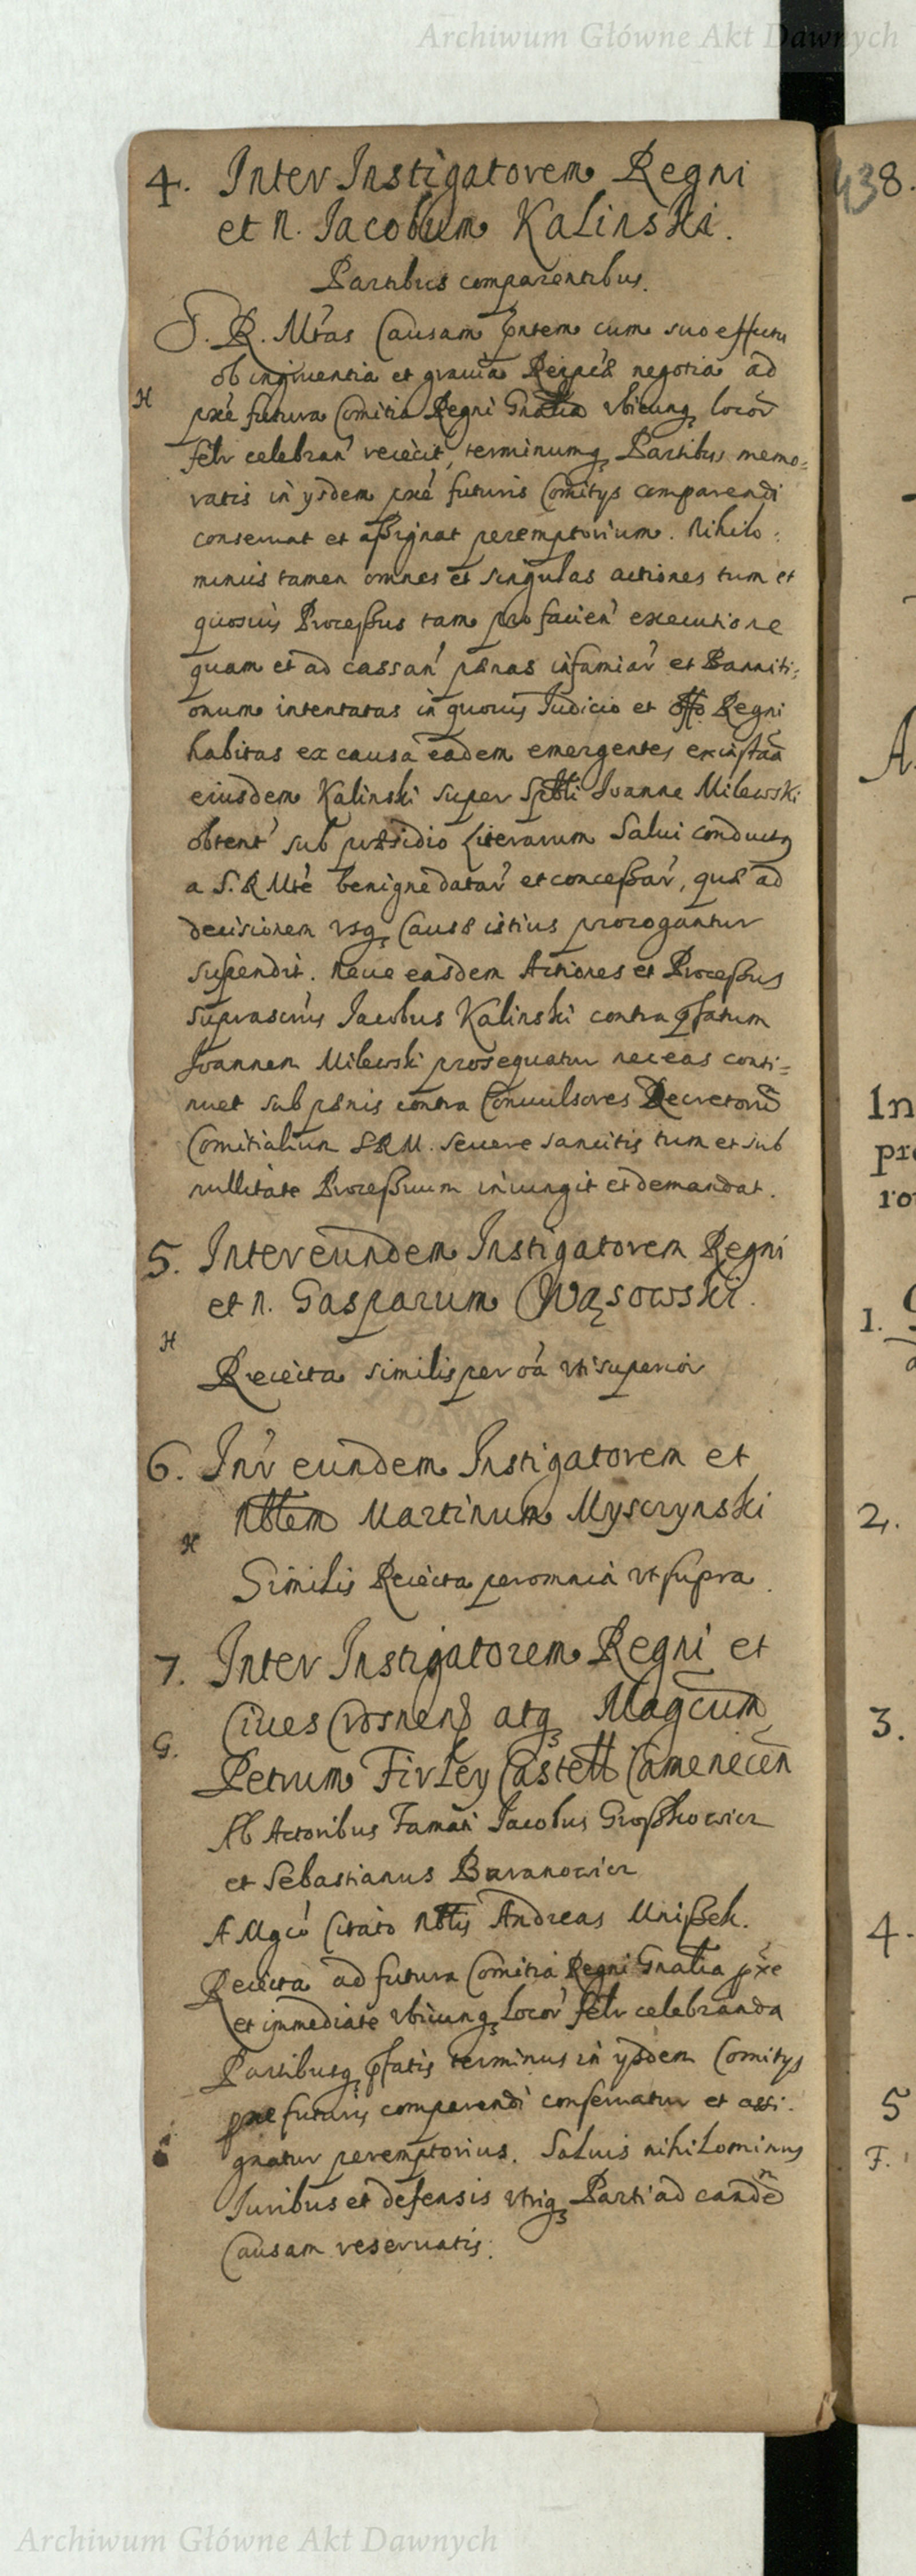 Archiwum Główne Akt Dawnych
4. Inter Instigatorem Regni
et N. Jacobum Kalinski.
Partibus comparentibus.
S. R. Mtas Causam pntem cum suo effectu
ob ingruentia et gravia Reipcæ negotia ad
H
pxe futura Comitia Regni Gnalia vbicunq locor
felr celebran reiecit, terminumq Partibus memo=
ratis in ysdem pxe futuris Comitys comparendi
conseruat et assignat peremptorium. Nihilo:
minus tamen omnes et singulas actiones tum et
quosuis Processus tam pro facien executione
quam et ad cassan pænas infamiar et Banniti:
onum intentatas in quouis Iudicio et offo Regni
habitas ex causa eadem emergentes ex instaa
eiusdem Kalinski super Spbli Joanne Milewski
obtent sub præsidio Literarum Salui conductq
a S. R Mte benigne datar et concessar, quæ ad
decisionem vsq Causæ istius prorogantur
suspendit. Neue easdem Actiones et Processus
suprascrus Jacobus Kalinski contra pfatum
Joannem Milewski prosequatur neceas conti=
nuet sub pænis contra Conuulsores Decretoru
Comitialium SRM. seuere sancitis tum et sub
nullitate Processuum iniungit et demandat.
5. Inter eundem Instigatorem Regni
et N. Gasparum Wąsowski.
H
Reiecta similis per oa vti superior
6. Inr eundem Instigatorem et
Nblem Martinum Myscrynski
H
Similis Reiecta per omnia vt supra.
7. Inter Instigatorem Regni et
Ciues Crosnens atq Magcum
G.
Petrum Firley Castell Camenecen
Ab Actoribus Famati Jacobus Groszkowicz
et Sebastianus Baranowicz
A Mgco Citato Nblis Andreas Uniszek.
Reiecta ad futura Comitia Regni Gnalia pxe
et immediate vbicunq Locor felr celebranda
Partibusq pfatis terminus in ysdem Comitys
pxe futuris comparendi conseruatur et assi:
gnatur peremptorius. Saluis nihilominus
Iuribus et defensis vtriq Parti ad eande
Causam reseruatis.
438.
A.
In
pro
ro
1.
2.
3.
4.
5
F.
Archiwum Główne Akt Dawnych